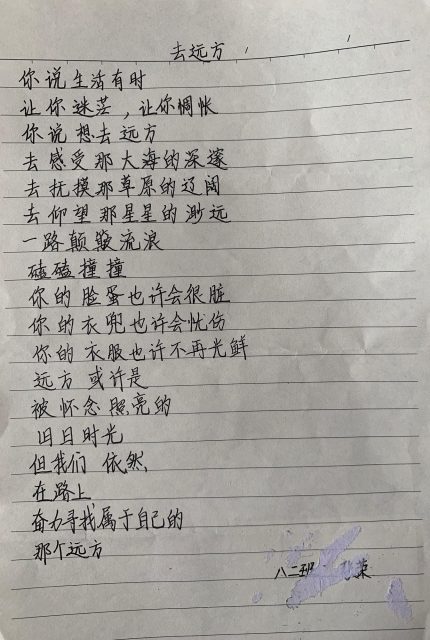 去远方
你说生活有时
让你迷茫，让你惆怅
你说想去远方
去感受那大海的深邃
去抚摸那草原的辽阔
去仰望那星星的渺远
一路颠簸流浪
磕磕撞撞
你的脸蛋也许会很脏
你的衣兜也许会忧伤
你的衣服也许不再光鲜
远方或许是
被怀念照亮的
旧日时光
但我们依然
在路上
奋力寻找属于自己的
那个远方
八二班